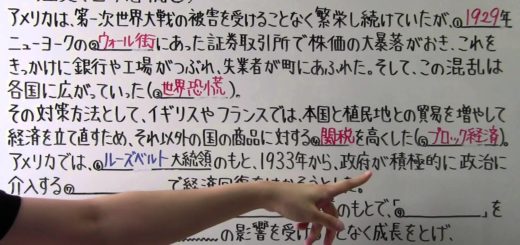 アメリカは、第一次世界大戦の被害を受けることなく繁栄し続けていたが、1929年
ニューヨークのウォール街にあった証券取引所で株価の大暴落がおき、これを
きっかけに銀行や工場がつぶれ、失業者が町にあふれた。そして、この混乱は
各国に広がっていった(世界恐慌)。
その対策方法として、イギリスやフランスでは、本国と植民地との貿易を増やして
経済を立て直すため、それ以外の国の商品に対する関税を高くした(ブロック経済)。
アメリカでは、ルーズベルト大統領のもと、1933年から、政府が積極的に政治に
介入する で経済回復をはかろうとした。
のもとで、「 」を
の影響を受けることなく成長をとげ、